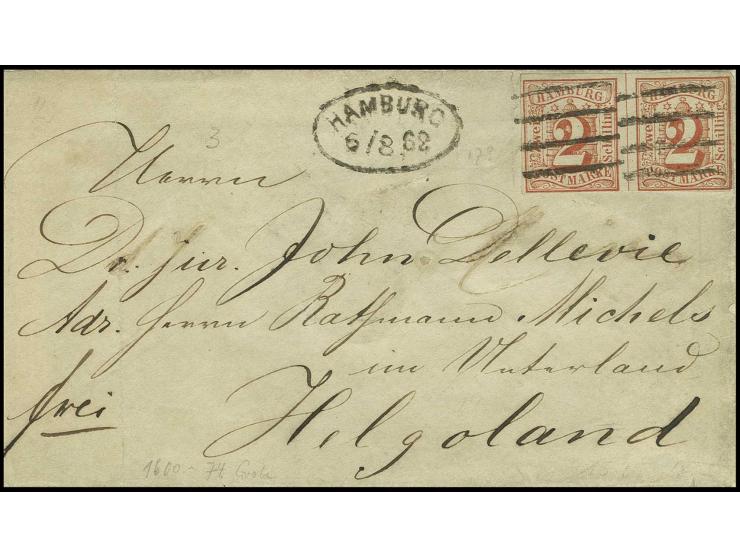 HAMBURG
6/8 62
HAMBURG
2
Zwei
Schilling
POSTMARKE
HAMBURG
2
Zwei
Schilling
POSTMARKE
3
Herrn
Dr. jur. John Dellevie
Adr. Herrn Rathmann Michels
im Unterland
frei
Helgoland
1600.- 74 Grobe